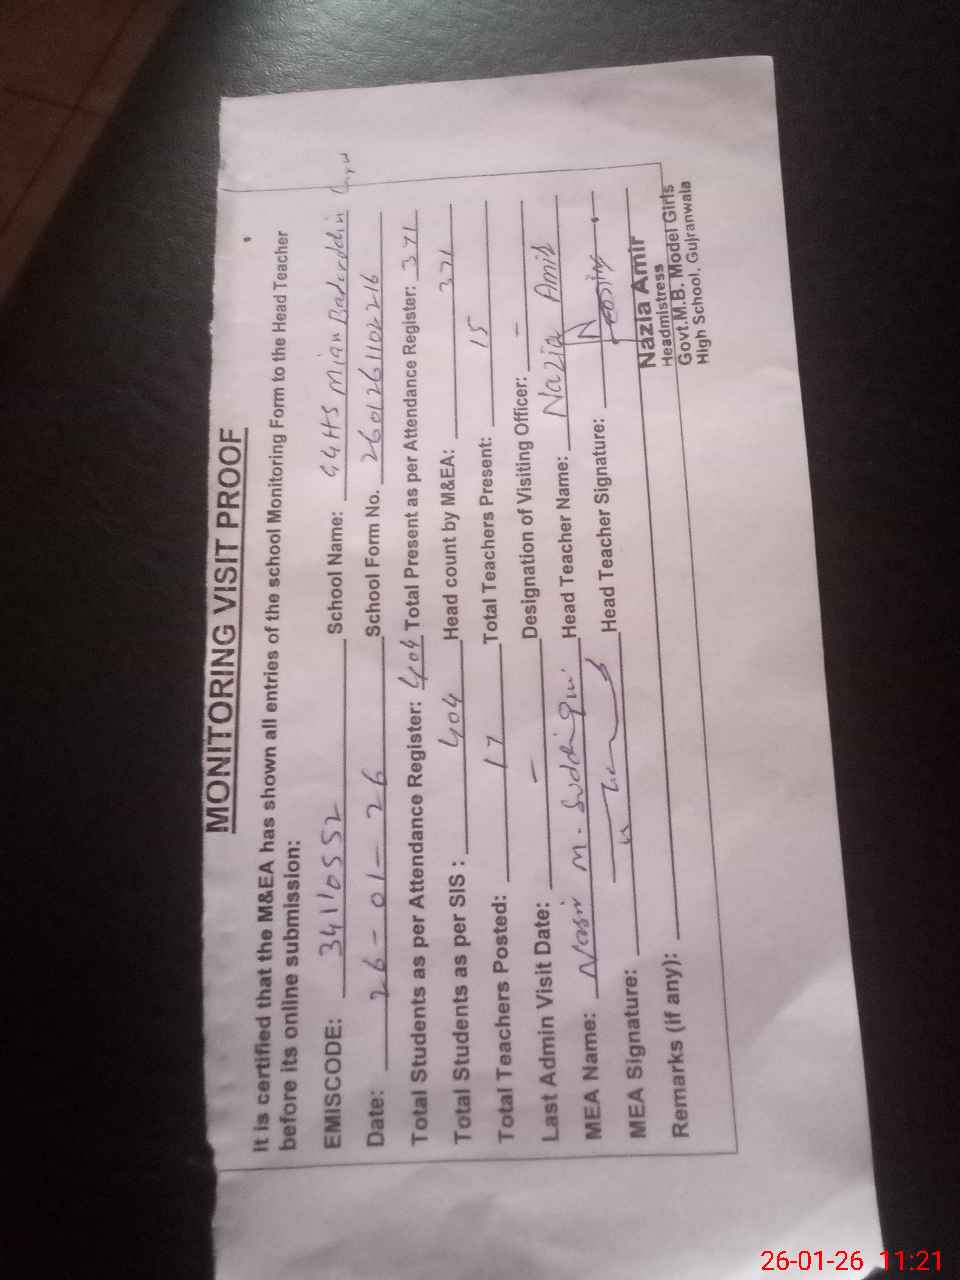 MONITORING VISIT PROOF
It is certified that the M&EA has shown all entries of the school Monitoring Form to the Head Teacher
before its online submission:
EMISCODE: 34110552 School Name: GGHS Mian
Date: 26-01-26 School Form No. 2601261102216
Total Students as per Attendance Register: 404 Total Present as per Attendance Register: 371
Total Students as per SIS : 404 Head count by M&EA: 371
Total Teachers Posted: 17 Total Teachers Present: 15
Last Admin Visit Date: – Designation of Visiting Officer: –
MEA Name: M. Head Teacher Name: Nazia Amir
MEA Signature: Head Teacher Signature:
Remarks (if any):
Nazia Amir
Headmistress
Govt.M.B. Model Girls
High School, Gujranwala
26-01-26 11:21